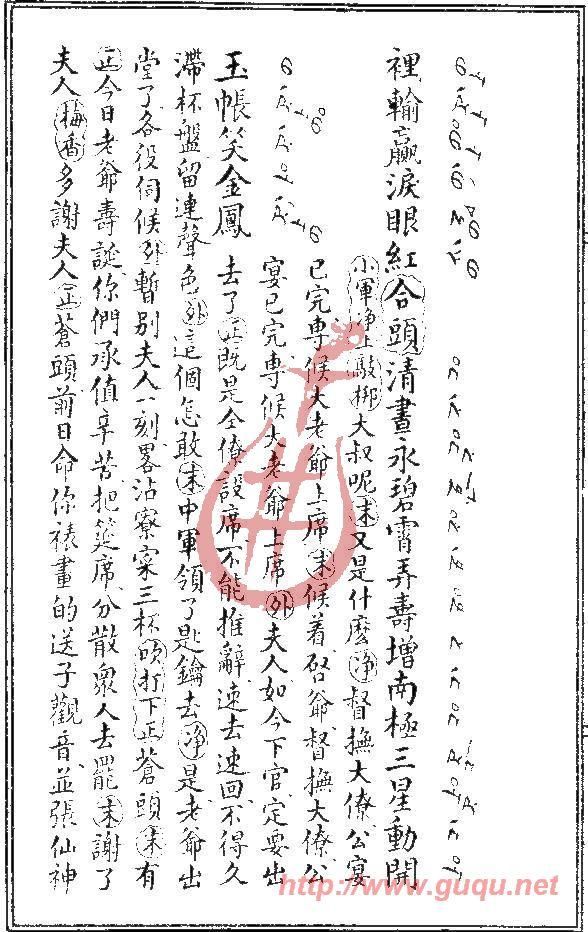 裡輸贏淚眼紅合頭清晝永碧霄弄壽增南極三星動開
小軍淨上敲梆大叔呢末又是什麽淨督撫大僚公宴
已完專候大老爺上席末候着啓爺督撫大僚公
宴已完專候大老爺上席外夫人如今下官定要出
玉帳笑金鳳
去了正既是仝僚設席不能推辭速去速回不得久
滯杯盤留連聲色外這個怎敢末中軍領了匙鑰去淨是老爺出
堂了各役伺候外暫別夫人一刻畧沾寮寀三杯吹打下正蒼頭末有
正今日老爺壽誕你們承值辛苦把筵席分散衆人去罷末謝了
夫人梅香多謝夫人正蒼頭前日命你裱畫的送子觀音並張仙神
http://www.guqu.net